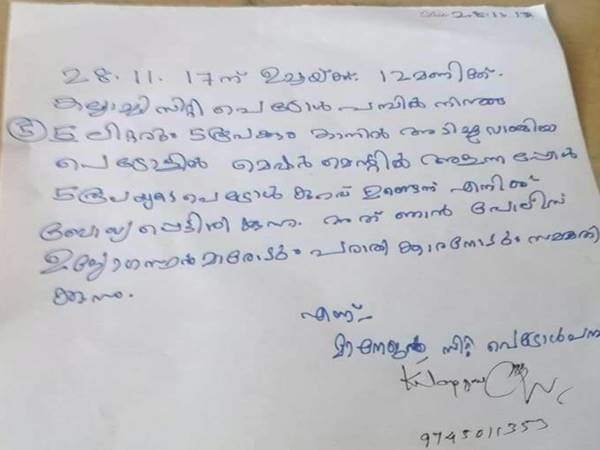 28.11.17
28.11.17ന് ഉച്ചയ്ക്ക് 12 മണിക്ക്.
കല്ലാച്ചി സിറ്റി പെട്രോൾ പമ്പിൽ നിന്നു
⑤ 5 ലിറ്ററും 5 രൂപക്കും കാനിൽ അടിച്ചു വാങ്ങിയ
പെട്രോളിൽ മെഷർമെന്റിൽ അളന്നപ്പോൾ
5 രൂപയുടെ പെട്രോൾ കുറവ് ഉണ്ടെന്ന് എനിക്ക്
ബോധ്യപ്പെട്ടിരിക്കുന്നു. അത് ഞാൻ പോലീസ്
ഉദ്യോഗസ്ഥൻമാരോടും പരാതിക്കാരനോടും സമ്മതി
ക്കുന്നു.
എന്ന്
മാനേജർ സിറ്റി പെട്രോൾ പമ്പ
9745011353